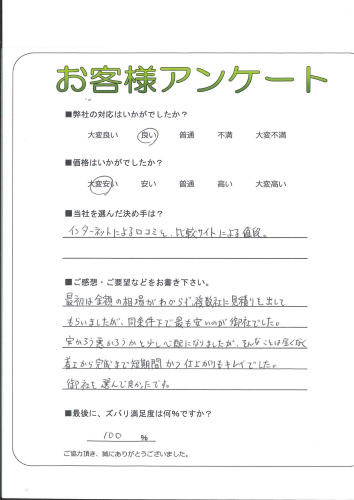 お客様アンケート
■弊社の対応はいかがでしたか？
大変良い 良い 普通 不満 大変不満
■価格はいかがでしたか？
大変安い 安い 普通 高い 大変高い
■当社を選んだ決め手は？
インターネットによる口コミと、比較サイトによる値段。
■ご感想・ご要望などをお書き下さい。
最初は金額の相場がわからず、複数社に見積りを出して
もらいましたが、同条件下で最も安いのが御社でした。
安かろう悪かろうかと少し心配になりましたが、そんなことは全くなく
着工から完成まで短期間かつ仕上がりもキレイでした。
御社を選んで良かったです。
■最後に、ズバリ満足度は何％ですか？
100 ％
ご協力頂き、誠にありがとうございました。